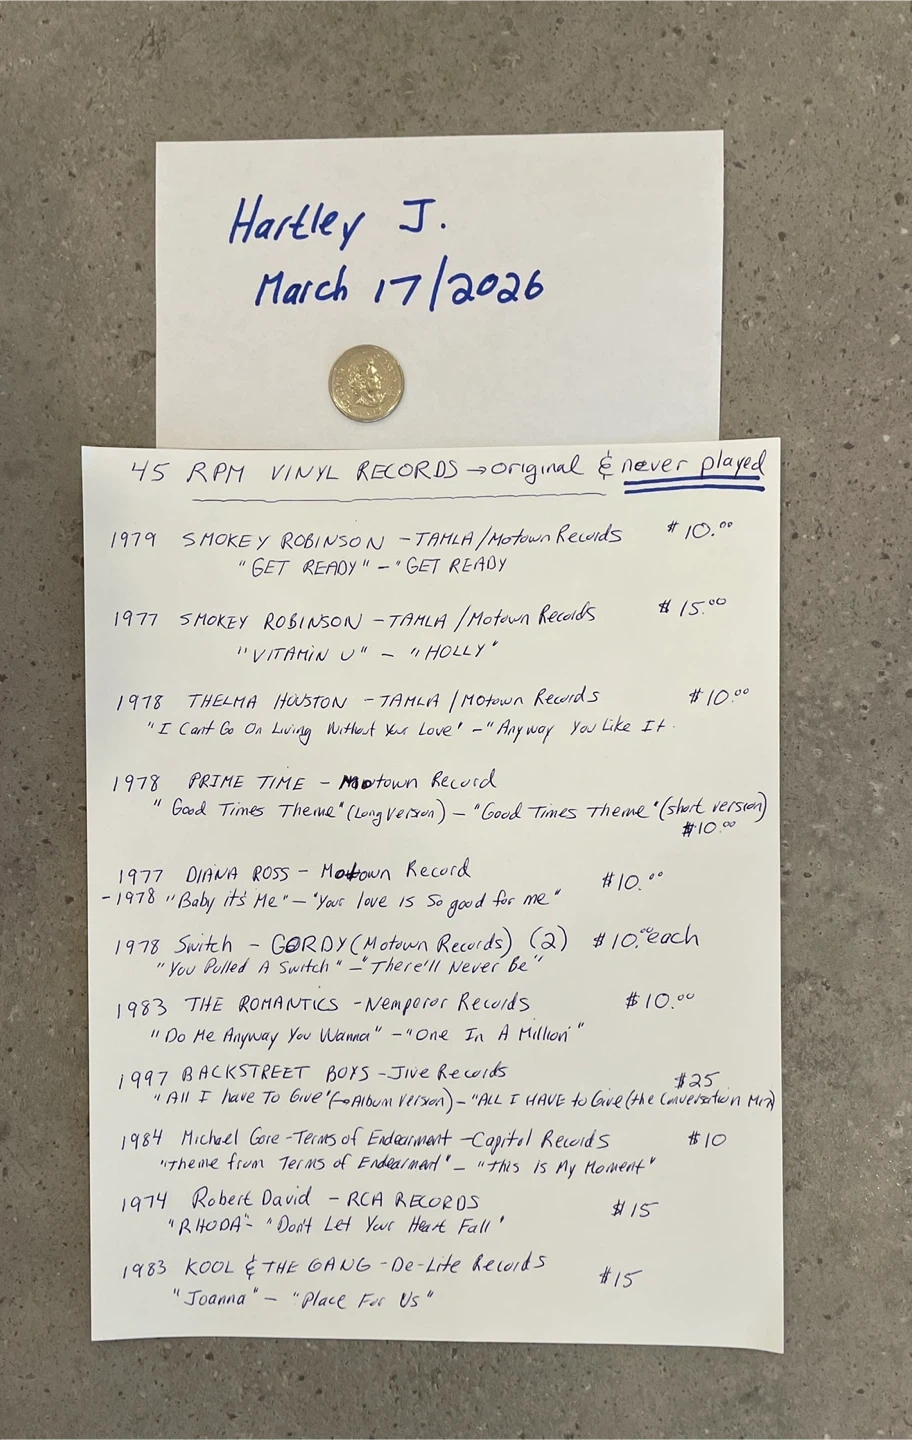 Hartley J.
March 17/2026
45 RPM VINYL RECORDS → original & never played
1979 SMOKEY ROBINSON - TAMLA/Motown Records $10.00
"GET READY" - "GET READY
1977 SMOKEY ROBINSON - TAMLA/Motown Records $15.00
"VITAMIN U" - "HOLLY"
1978 THELMA HOUSTON - TAMLA/Motown Records $10.00
"I Cant Go On Living Without Your Love" - "Anyway You Like It.
1978 PRIME TIME - Motown Record
"Good Times Theme" (Long Version) - "Good Times Theme" (short version)
$10.00
1977 DIANA ROSS - Motown Record $10.00
-1978 "Baby it's Me" - "Your love is so good for me"
1978 Switch - GORDY (Motown Records) (2) $10.00 each
"You Pulled A Switch" - "There'll Never Be"
1983 THE ROMANTICS - Nemperor Records $10.00
"Do Me Anyway You Wanna" - "One In A Million"
1997 BACKSTREET BOYS - Jive Records $25
"All I have To Give" (Album Version) - "ALL I HAVE to Give (the Conversation Mix)
1984 Michael Gore - Terms of Endearment - Capitol Records $10
"Theme from Terms of Endearment" - "This is My Moment"
1974 Robert David - RCA RECORDS $15
"RHODA" - "Don't Let Your Heart Fall"
1983 KOOL & THE GANG - De-Lite Records $15
"Joanna" - "Place For Us"